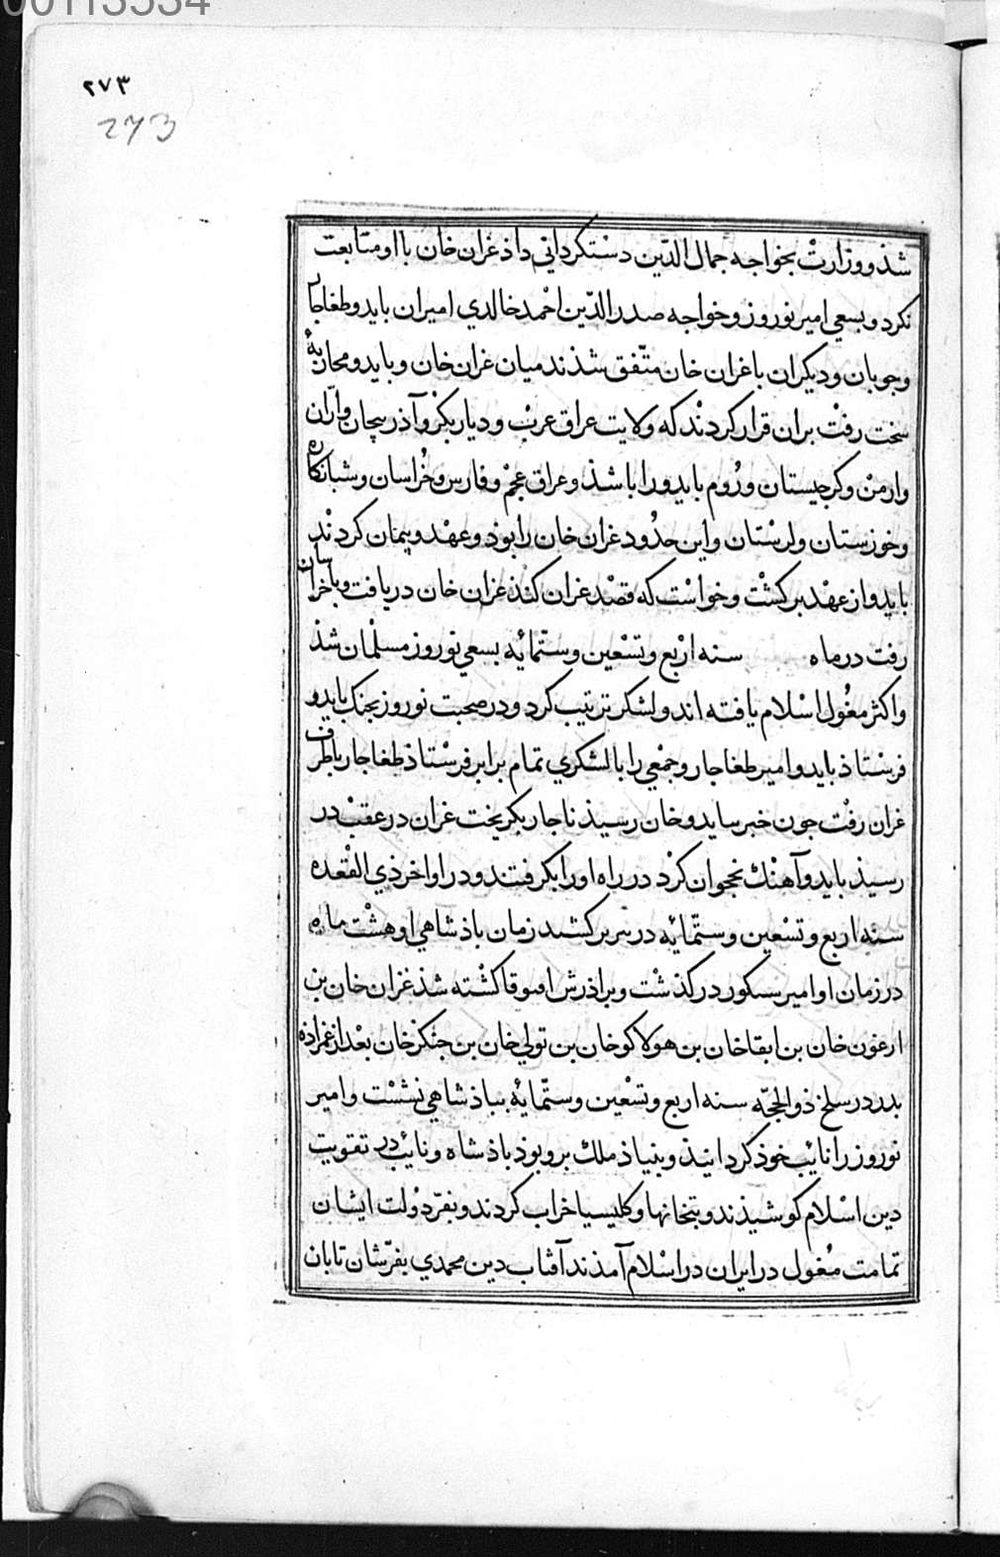 00113534
٢٧٣
273
شذ و وزارت بخواجه جمال الدّین دستکردانی داذ غزان خان با او متابعت
نکرد و بسعی امیر نوروز و خواجه صدر الدّین احمد خالدی امیران بایدو طغاجار
و جوبان و دیکران با غزان خان متّفق شدند میان غزان خان و بایدو محاربهٔ
سخت رفت بران قرار کردند که ولایت عراق عرب و دیار بکر و آذربیجان و ارّان
و ارمن و کرجیستان و رُوم بایدو را باشذ و عراق عجم و فارس و خُراسان و شبانکاره
و خوزستان و لرستان و این حدُود غزان خان را بوذ و عهد و پیمان کردند
بایدو از عهد برکشت و خواست که قصد غزان کند غزان خان دریافت و با خراسان
رفت در ماه سنه اربع و تسعین و ستّمائه بسعی نوروز مسلمان شذ
و اکثر مغُول اسلام یافته اند و لشکر ترتیب کرد و در صحبت نوروز بجنک بایدو
فرستاذ بایدو امیر طغاجار و جمعی را با لشکری تمام برابر فرستاذ طغاجار باطرف
غزان رفت جون خبر ببایدو خان رسیذ ناجار بکریخت غزان در عقب در
رسیذ بایدو آهنک نخجوان کرد در راه او را بکرفتند و در اواخر ذی القعده
سنه اربع و تسعین و ستّمائه در تبریز بکشتند زمان باذشاهی او هشت ماه
در زمان او امیر در کذشت و براذرش کشته شذ غزان خان بن
ارغون خان بن ابقا خان بن هولاکو خان بن تولی خان بن جنکز خان بعد از عمزاذه
بدر در سلخ ذو الحجّه سنه اربع و تسعین و ستّمایهٔ بباذشاهی نشست و امیر
نوروز را نائب خوذ کردانیذ و بنیاذ ملک برو بوذ باذشاه و نائب در تقویت
دین اسلام کوشیذند و بتخانها و کلیسیا خراب کردند و بفرّ دولت ایشان
تمامت مُغول در ایران در اسلام آمذند آفتاب دین محمدی بفرّشان تابان